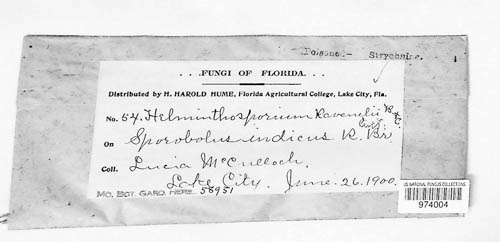 Poisoned - Strychnine.
. . .FUNGI OF FLORIDA. . . .
Distributed by H. HAROLD HUME, Florida Agricultural College, Lake City, Fla.
No. 54. Helminthosporium Ravenelii B. & C.
Curt.
On Sporobolus indicus R. Br
Coll. Lucia McCulloch,
Lake City, June. 26. 1900.
MO. BOT. GARD. HERB. 58951
US NATIONAL FUNGUS COLLECTIONS
974004